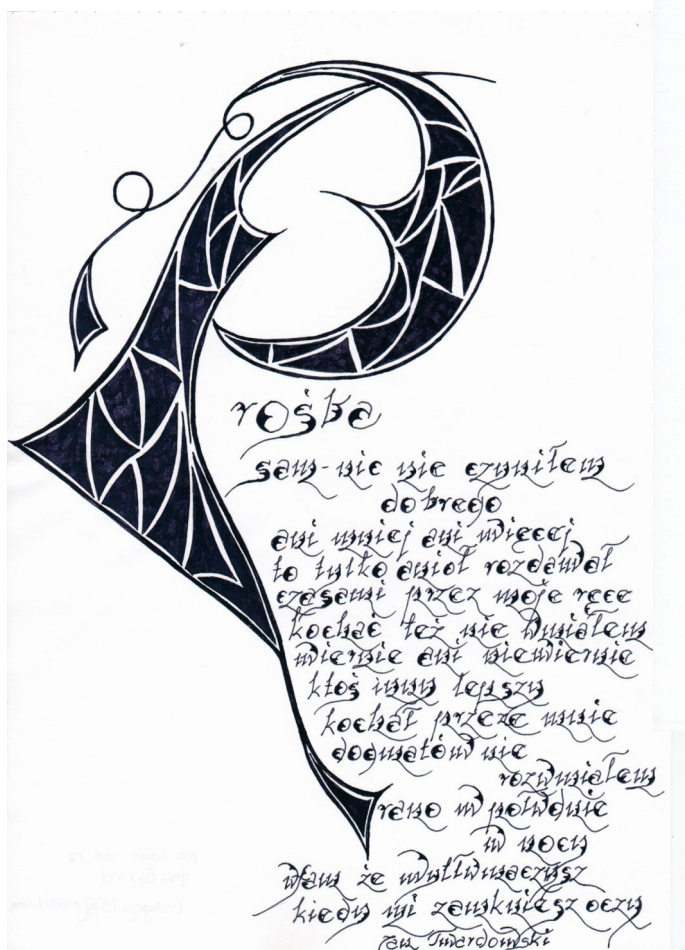 Prośba
sam-nic nie czyniłem
dobrego
ani mniej ani więcej
to tylko anioł rozdawał
czasami przez moje ręce
kochać też nie umiałem
wiernie ani niewiernie
ktoś inny lepszy
kochał przeze mnie
dogmatów nie
rozumiałem
rano w południe
w nocy
ufam że wytłumaczysz
kiedy mi zamkniesz oczy
Jan Twardowski